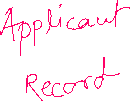 Applicant
Record